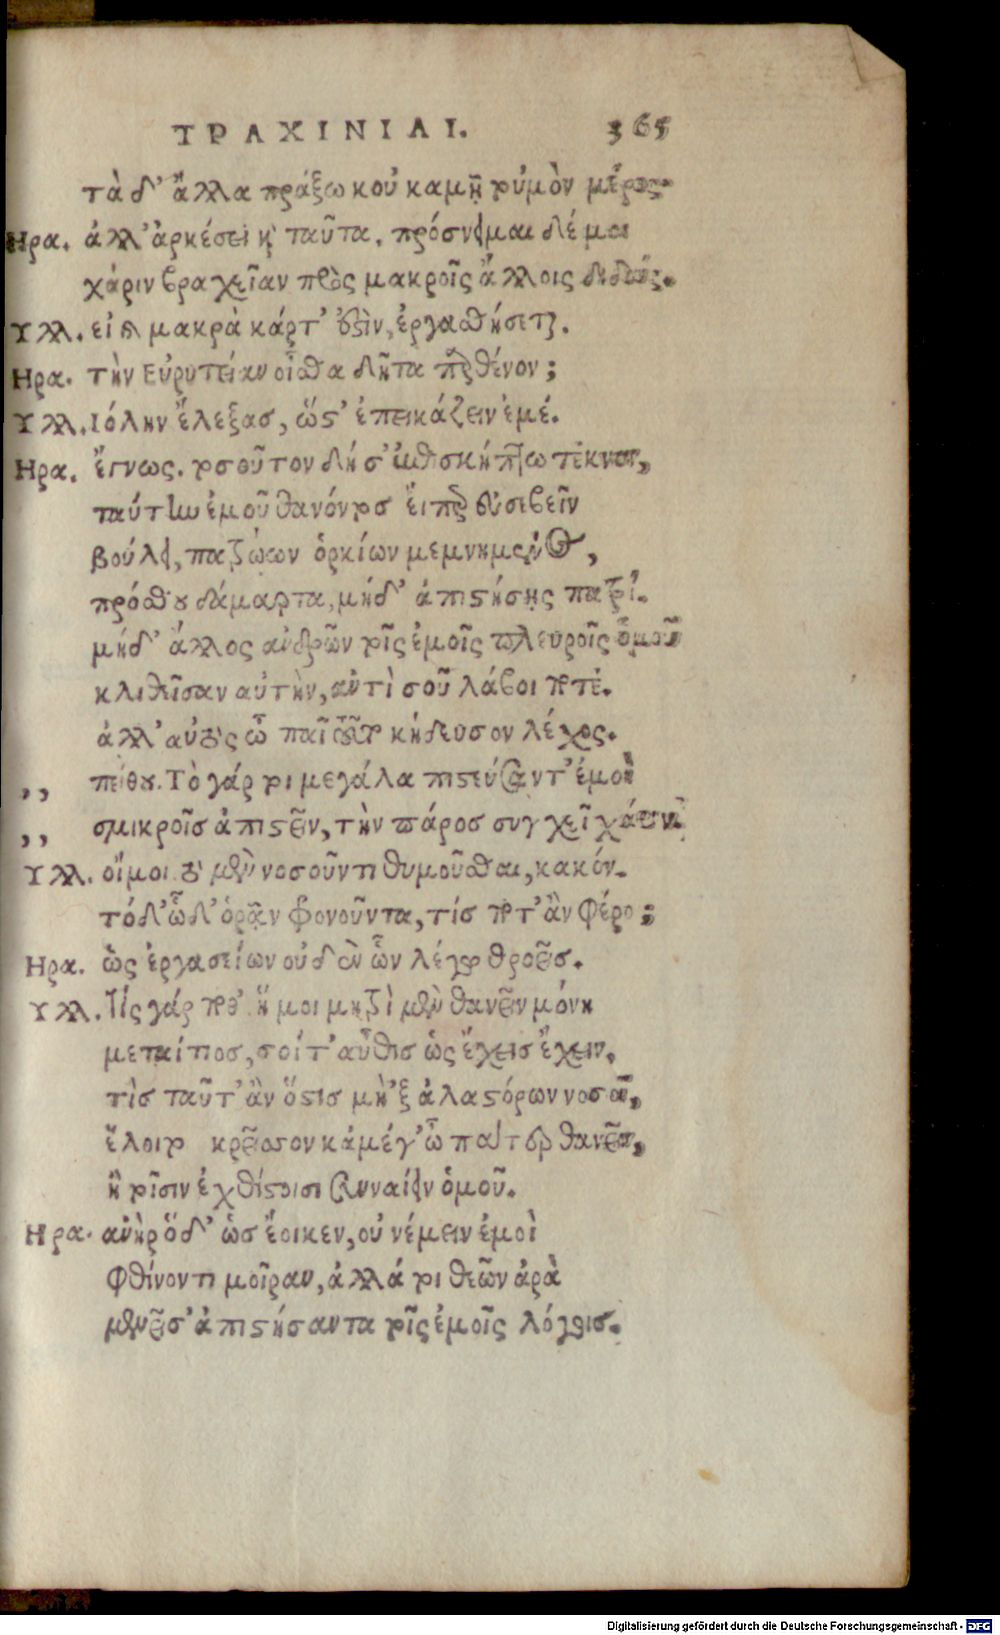 ΤΡΑΧΙΝΙΑΙ. 365
τὰ δ' ἄλλα πράξω κοὐ καμῇ τοὐμὸν μέρος.
Ηρα. ἀλλ' ἀρκέσει καὶ ταῦτα. πρόσνειμαι δέ μοι
χάριν βραχεῖαν πρὸς μακροῖς ἄλλοις διδούς.
Υλλ. εἰ καὶ μακρὰ κάρτ' ἐστὶν, ἐργασθήσεται.
Ηρα. τὴν Εὐρυτείαν οἶσθα δῆτα παρθένον;
Υλλ. Ιόλην ἔλεξας, ὥστ' ἐπεικάζειν ἐμέ.
Ηρα. ἔγνως. τοσοῦτον δή σ' ἐπισκήπτω τέκνον,
ταύτην ἐμοῦ θανόντος εἴπερ εὐσεβεῖν
βούλει, πατρῴων ὁρκίων μεμνημένος,
πρόσθου δάμαρτα, μήδ' ἀπιστήσῃς πατρί.
μήδ' ἄλλος ἀνδρῶν τοῖς ἐμοῖς πλευροῖς ὁμοῦ
κλιθεῖσαν αὐτὴν, ἀντὶ σοῦ λάβοι ποτέ.
ἀλλ' αὐτὸς ὦ παῖ τοῦτο κήδευσον λέχος.
,, πείθου. Τὸ γάρ τοι μεγάλα πιστεύσαντ' ἐμοὶ
,, σμικροῖς ἀπιστεῖν, τὴν πάρος συγχεῖ χάριν.
Υλλ. οἴμοι. τὸ μὲν νοσοῦντι θυμοῦσθαι, κακόν.
τόδ' ὧδ' ὁρᾶν φρονοῦντα, τίς ποτ' ἂν φέροι;
Ηρα. ὡς ἐργασείων οὐδὲν ὧν λέγω θροεῖς.
Υλλ. Τίς γάρ ποθ' ἥ μοι μητρὶ μὲν θανεῖν μόνη
μεταίτιος, σοί τ' αὖθις ὡς ἔχεις ἔχειν,
τὶς ταῦτ' ἂν ὅστις μὴ 'ξ ἀλαστόρων νοσοῖ,
ἕλοιτο κρεῖσσον κἀμέ γ' ὦ πάτερ θανεῖν,
ἢ τοῖσιν ἐχθίστοισι συνναίειν ὁμοῦ.
Ηρα. ἀνὴρ ὅδ' ὡς ἔοικεν, οὐ νέμειν ἐμοὶ
φθίνοντι μοῖραν, ἀλλά τοι θεῶν ἀρὰ
μενεῖ σ' ἀπιστήσαντα τοῖς ἐμοῖς λόγοις.
Digitalisierung gefördert durch die Deutsche Forschungsgemeinschaft - DFG